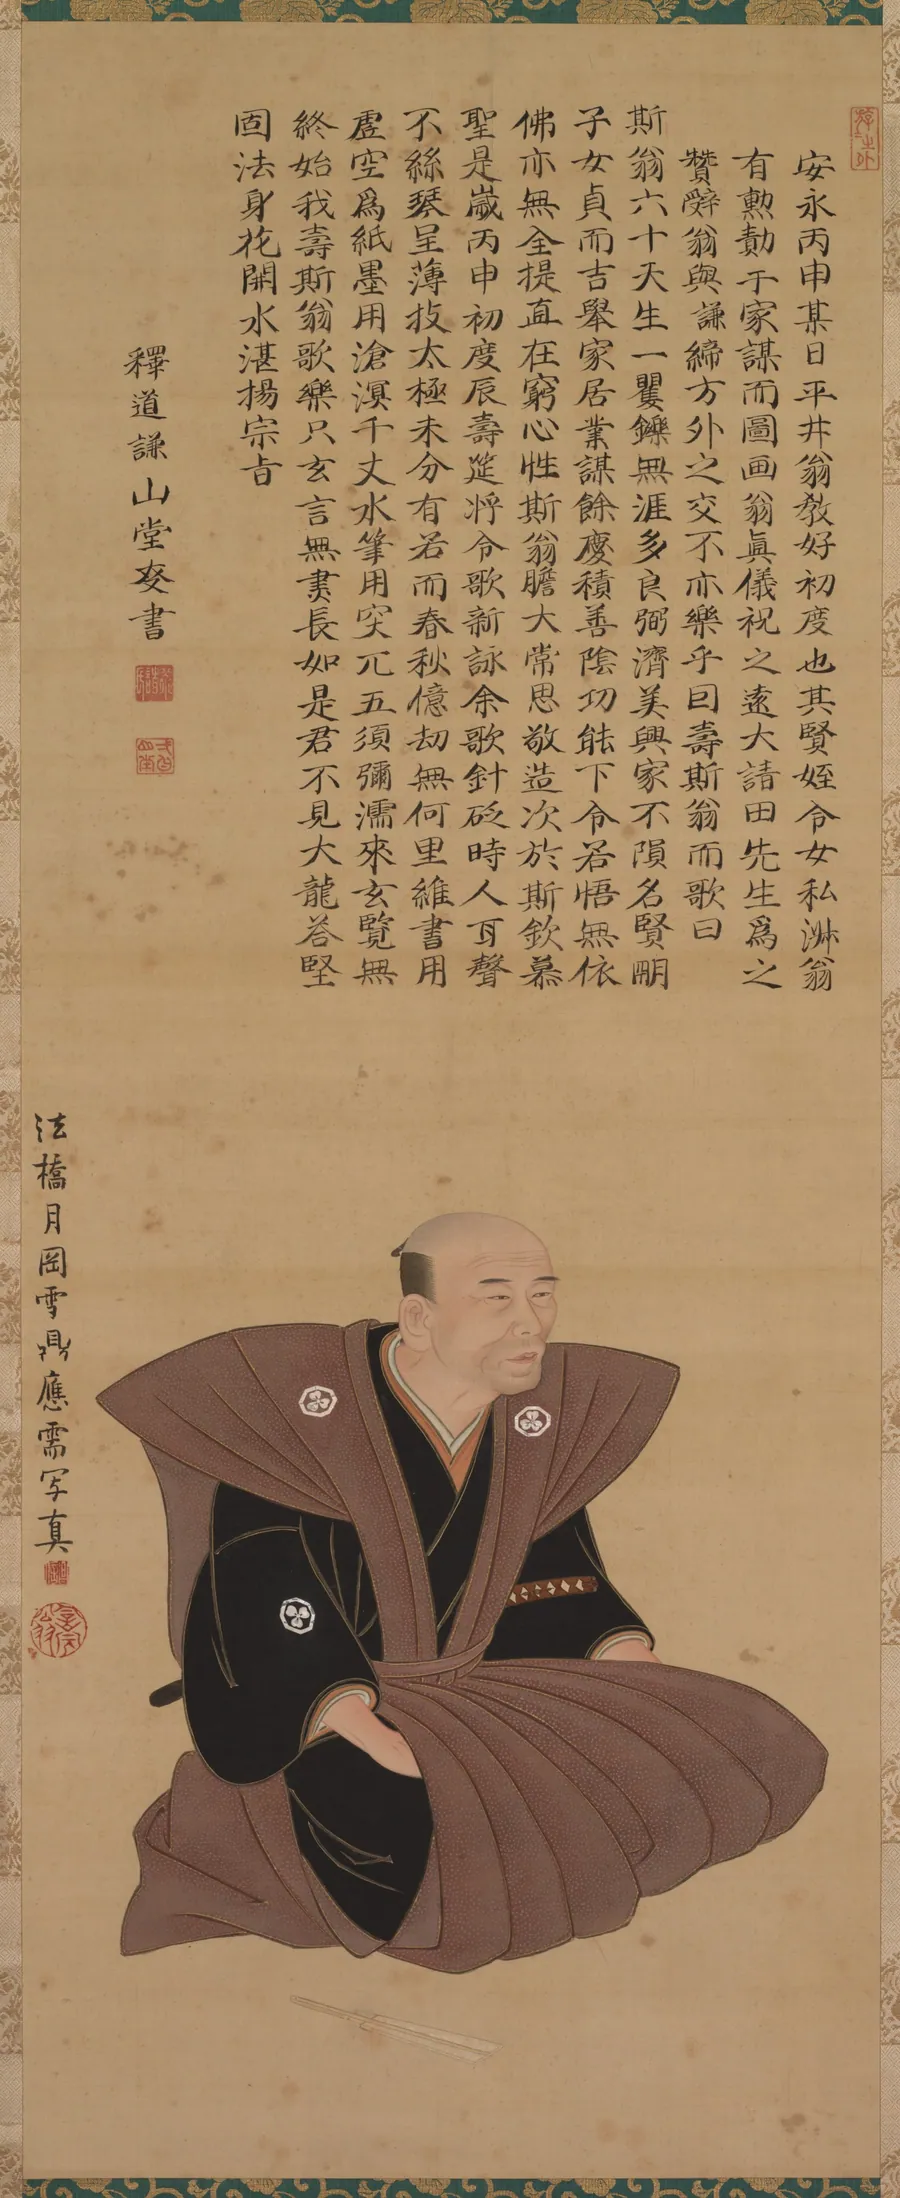 安永丙申某日平井翁敎好初度也其賢姪令女私淑翁
有勲勣于家謀而圖画翁眞儀祝之遠大請田先生爲之
贊辭翁與謙締方外之交不亦樂乎囙壽斯翁而歌曰
斯翁六十天生一矍鑠無涯多良弼濟美興家不隕名賢朙
子女貞而吉舉家居業謀餘慶積善陰功能下令若悟無依
佛亦無全提直在窮心性斯翁膽大常思敬造次於斯欽慕
聖是歳丙申初度辰壽筵将令歌新詠余歌針砭時人耳聲
不絲琴呈薄技太極未分有若而春秋億劫無何里維書用
虚空爲紙墨用滄溟千丈水筆用突兀五須彌濡來玄覽無
終始我壽斯翁歌樂只玄言無畫長如是君不見大龍答堅
固法身花開水湛揚宗旨
釋道謙山堂拜書
法橋月岡雪鼎應需写真